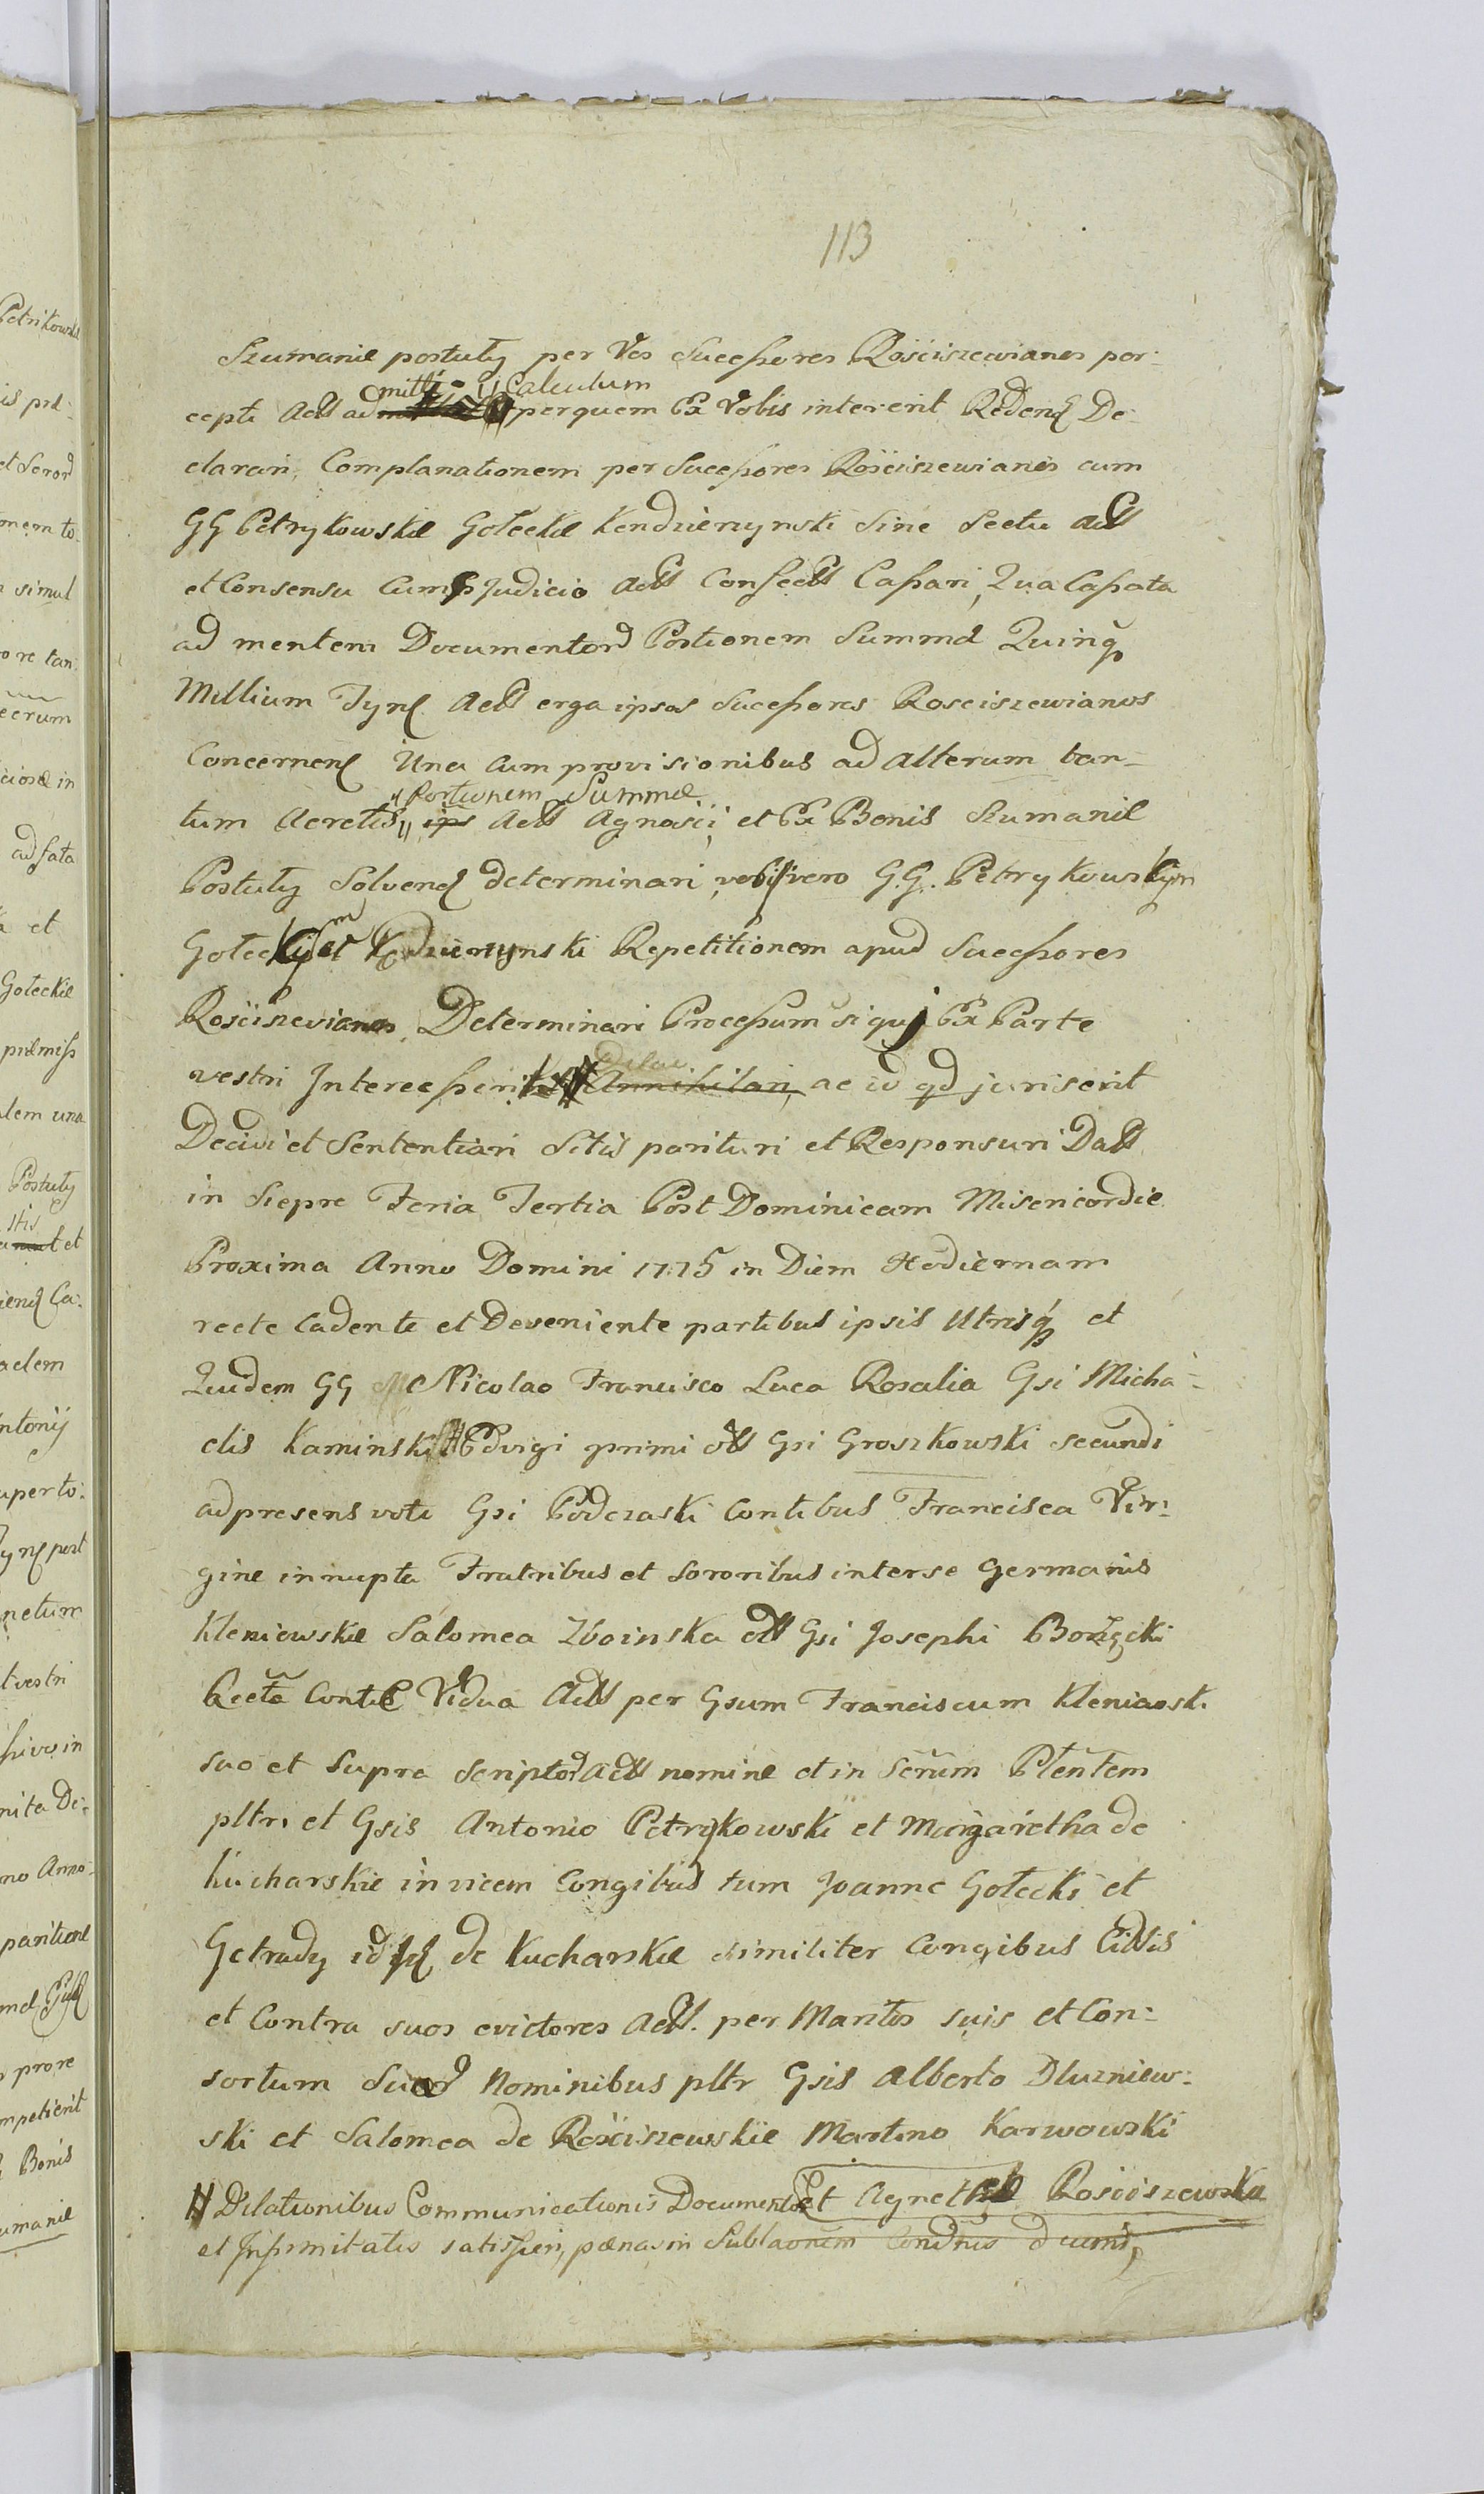 113
Szumanie postuty per Vos Sucessores Rosciszewianos per-
mitti Calculum
cepti actt ad per quem Ex Vobis intererit Redend De-
clarari, Complanationem per Sucessores Rosciszewianos cum
GG Petrykowskie Goleckie Kendzierzynski Sine Scetu actt
et Consensu cum judicio actt Confectt Cassari, Qua Cassata
ad mentem Documentor Portionem Summæ Quinq
Millium Tynf actt erga ipsos Sucessores Rosciszewianos
Concernen Una cum provisionibus ad alterum tan-
Portionem Summæ
tum acretis ips actt agnosci et Ex Bonis Szumanie
Postuty Solvend determinari, vobis vero G.G. Petrykowskim
Golec et Kędzierzynski Repetitionem apud Sucessores
Rosciszevianos, Determinari Processum si quis Ex Parte
vestri Intercesserit Annihilari, ac id qd juris erit
Decidi et Sententiari Sitis parituri et Responsuri Datt
in Siepre Feria Tertia Post Dominicam Misericordie
Proxima Anno Domini 1775 in Diem Hodiernam
recte Cadente et Deveniente partibus ipsis Utrisq et
Quidem GG Nicolao Francisco Luca Rosalia Gsi Micha-
elis Kaminski Edvigi primi ott Gsi Groszkowski secundi
ad presens voti Gsi Podczaski Contibus Francisca Vir-
gine innupta Fratribus et Sororibus inter se Germanis
Kleniewskie Salomea Zboinska ott Gsi Josephi Borzęcki
Recta Vidua Actt per Gsum Franciscum Kleniaosk.
suo et Supra Scriptor actt nomine et in Scrum Pltentem
pltr. et Gsis Antonio Petrykowski et Margaretha de
Kucharskie in vicem Congibus tum Joanne Golecki et
Getrudy de Kucharskie similiter Congibus Citdis
et Contra suos evictores actt. per Maritos suis et Con-
sortum Suar Nominibus pltr Gsis Alberto Dluzniew-
ski et Salomea de Rosciszewskie Martino Karwowski
Et Agneth Rosciszewska
Dilationibus Communicationis Document
et Infirmitatis satisfieri, pænas in Condnis